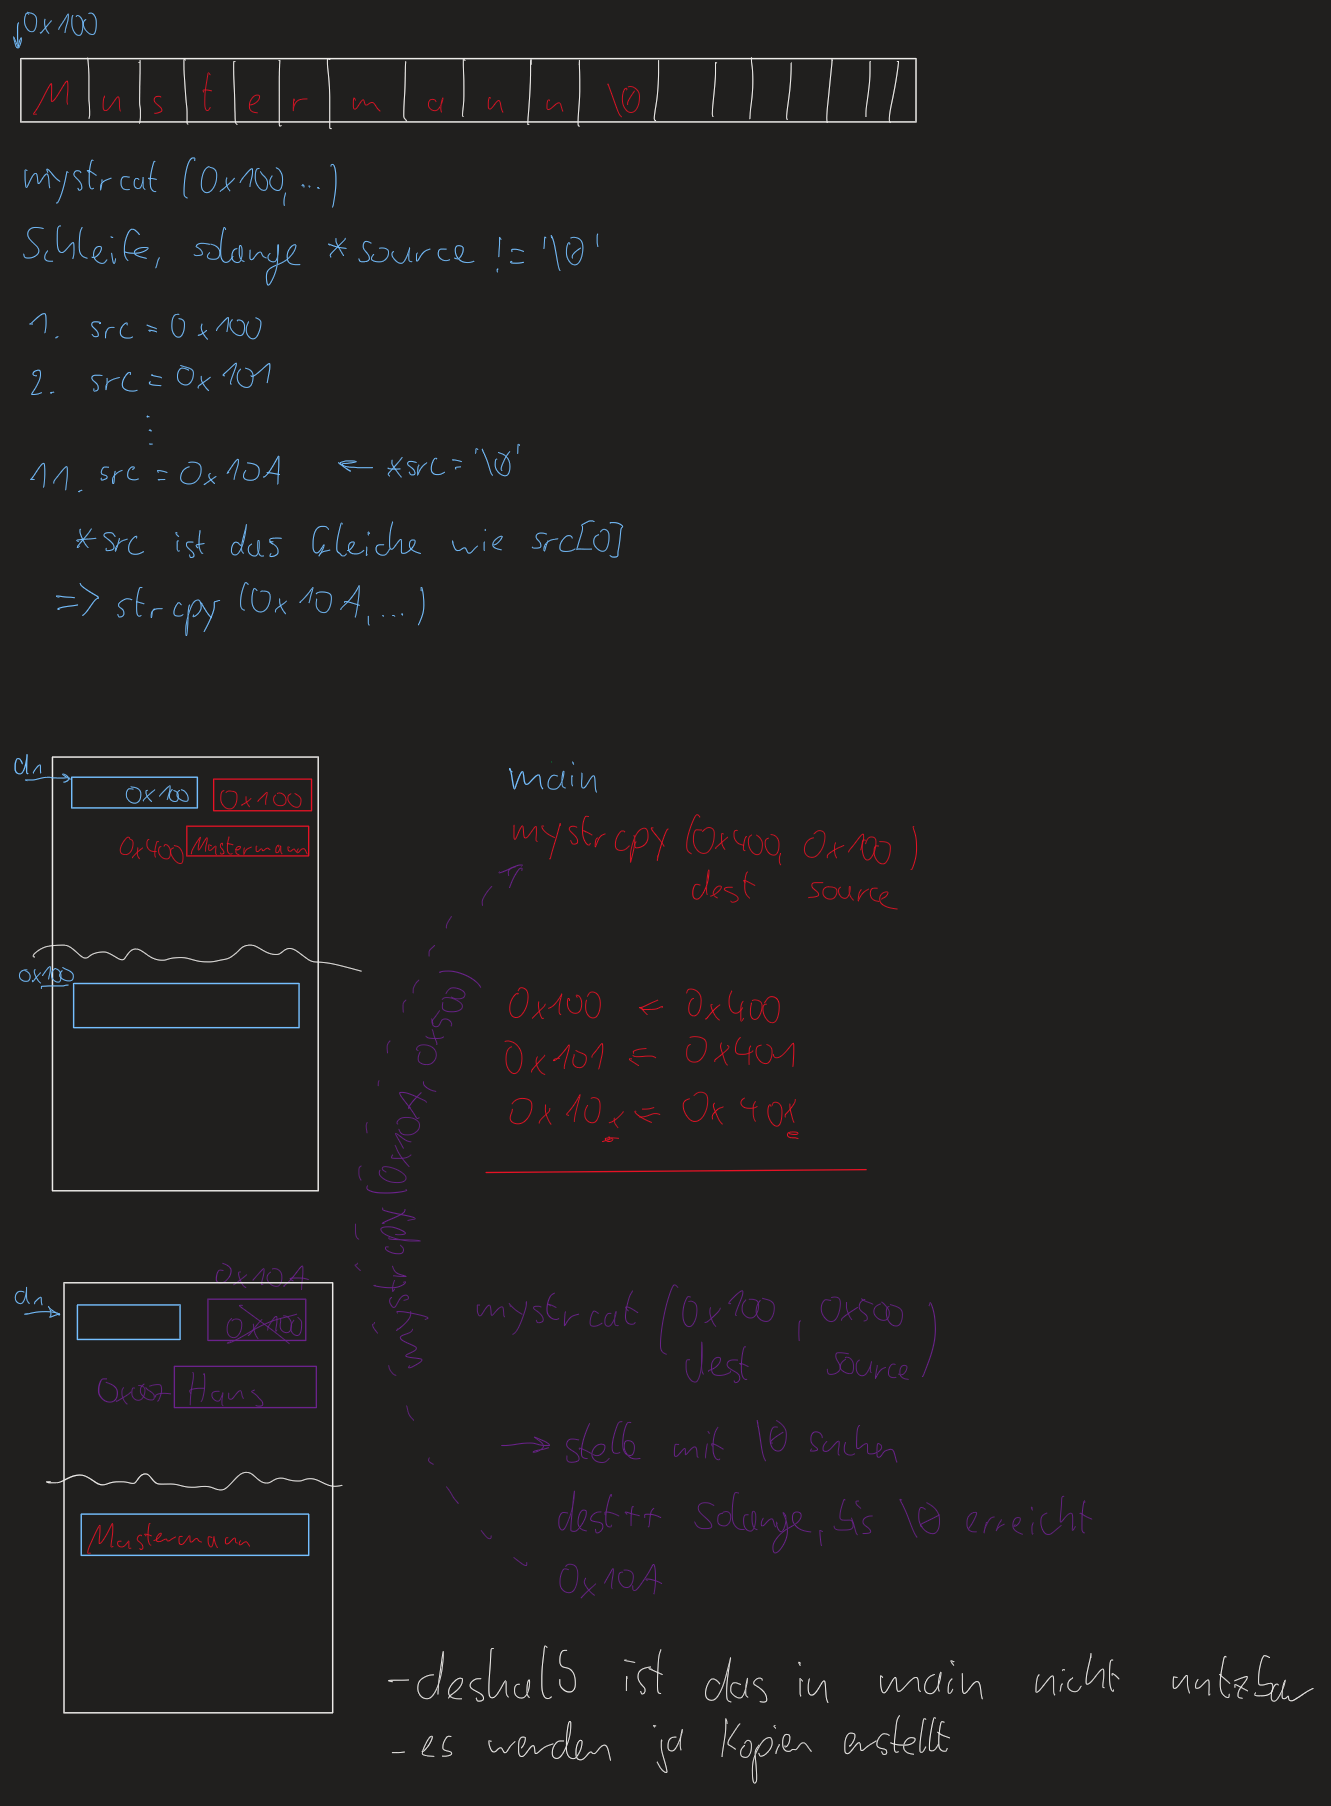 0x100
M u s t e r m a n n \0
mystrcat (0x100, ...)
Schleife, solange *source != '\0'
1. src = 0x100
2. src = 0x101
⋮
11. src = 0x10A ← *src = '\0'
*src ist das Gleiche wie src[0]
=> strcpy (0x10A, ...)
d1
0x100 0x100
0x400 Mustermann
0x100
main
mystrcpy (0x400, 0x100)
dest source
0x100 <= 0x400
0x101 <= 0x401
0x10x <= 0x40x
mystrcpy (0x10A, 0x500)
d1
0x10A
0x100
Hans
Mustermann
mystrcat (0x100, 0x500)
dest source
→ stelle mit \0 suchen
dest++ Solange, bis \0 erreicht
0x10A
- deshalb ist das in main nicht nutzbar
- es werden ja Kopien erstellt